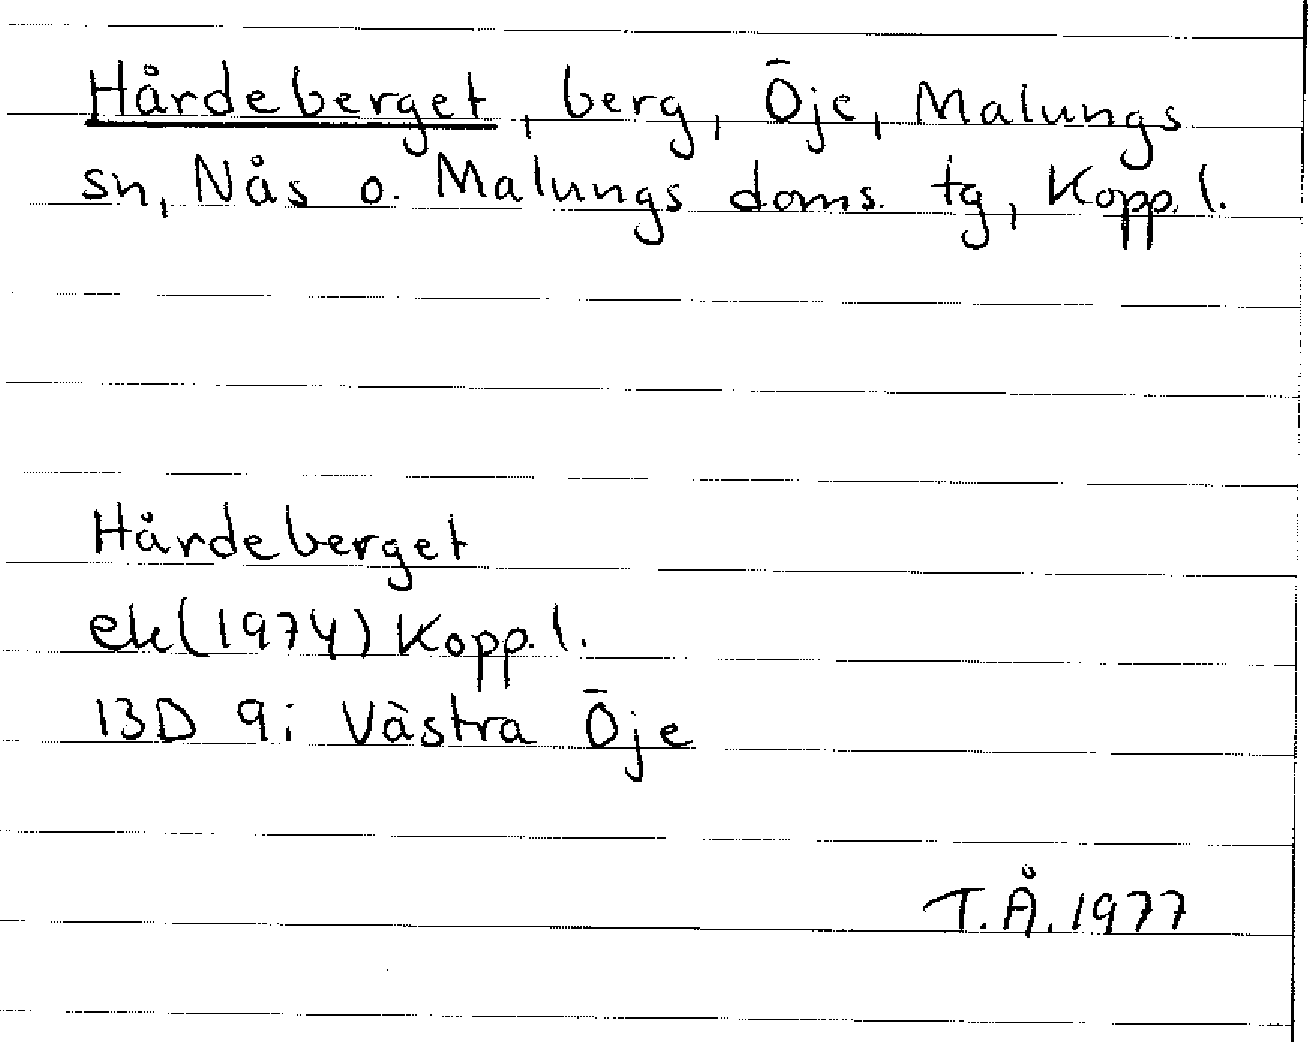 Hårdeberget, berg, Öje, Malungs
sn, Nås o. Malungs doms. tg, Kopp. l.
Hårdeberget
ek (1974) Kopp. l.
13D 9i Västra Öje
T.Å. 1977